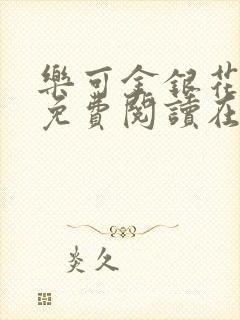 樂可金銀花
免費閱讀在
炎久